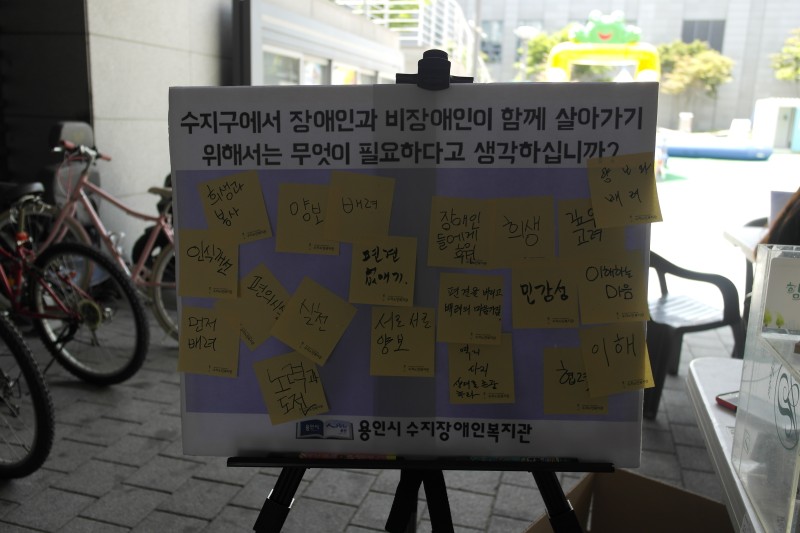 수지구에서 장애인과 비장애인이 함께 살아가기
위해서는 무엇이 필요하다고 생각하십니까?
희생과
봉사
양보
배려
장애인
들에게
희생
배려
인식개선
편견
없애기.
민감성
이해하는
마음
편의시설
실천
먼저
배려
서로서로
양보
편견을 버리고
이해
노력과
도전
협력
용인시 수지장애인복지관